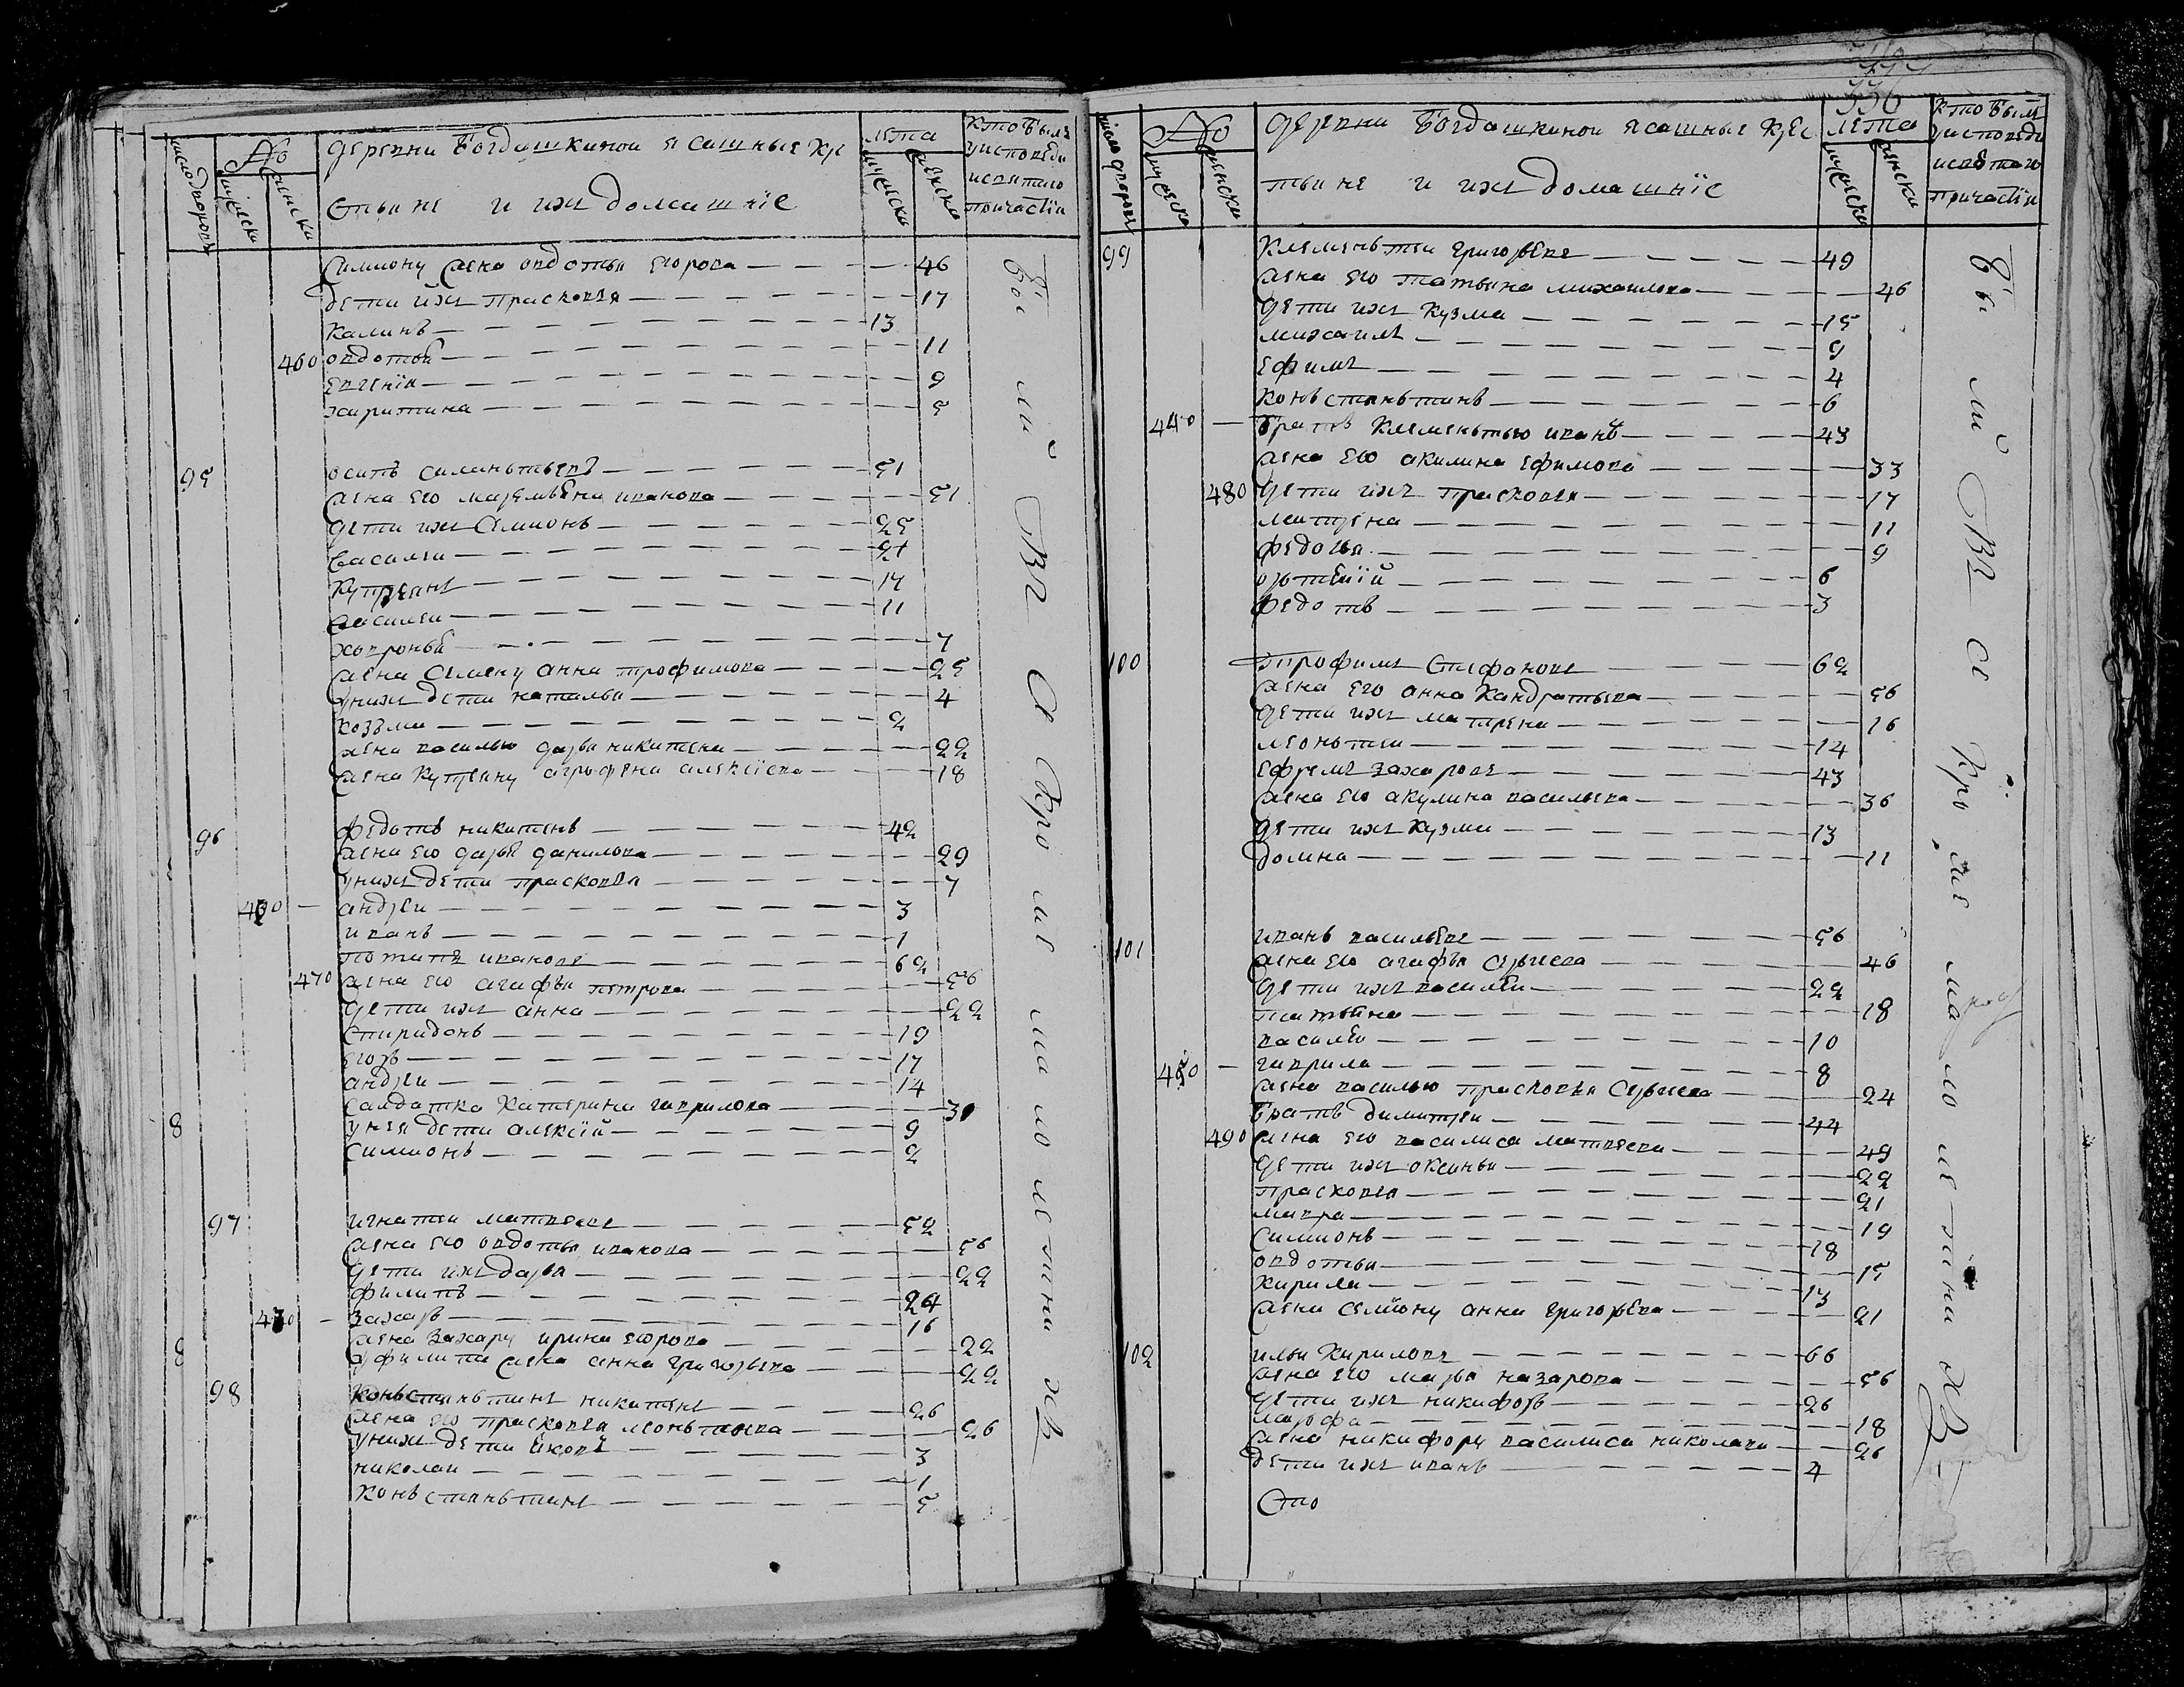 число дворовъ № мужеска женска деревни Богдашкиной ясашные кре лета мужеска женска кто былъ у исповеди и святаго причастїя
стьяне и ихъ домашнїе
Симиону жена овдотья егорова 46
дети ихъ прасковья 17
калинъ 13
460 овдотья 11
евгенїя 9
харитина 5
95 осипъ силиньтьевъ 51
жена его маремьяна иванова 51
дети ихъ Семионъ 25
василеи 21
купреянъ 17
василеи 11
ховронья 7
жена Семену анна трофимова 25
у нихъ дети наталья 4
козьма 2
жена василью дарья никитена 22
жена купреяну аграфена алексїева 18
96 федотъ никитенъ 42
жена его дарья данилова 29
у нихъ дети прасковья 7
андреи 3
иванъ 1
потапъ ивановъ 62
470 жена его агафья петрова 56
дети ихъ анна 22
спиридонъ 19
егоръ 17
андреи 14
8 салдатка катерина гаврилова 30
у нея дети алексїй 9
Симионъ 2
97 игнатеи матвеевъ 52
жена его овдотья иванова 56
дети ихъ дарья 22
филипъ 24
захаръ 16
8 жена захару ирина егорова 22
у филипа жена анна григорьева 22
98 коньстаньтинъ никитенъ 26
жена его прасковья леоньтьева 26
у нихъ дети яковъ 3
николаи 1
коньстаньтинъ 5
336
число дворовъ № мужеска женска деревни Богдашкиной ясашные крес лета мужеска женска кто былъ у исповеди и святаго причастїя
тьяне и ихъ домашнїе
99 клеменьтеи григорьевъ 49
жена его татьяна михаилова 46
дети ихъ кузма 15
михаилъ 9
ефимъ 4
коньстаньтинъ 6
440 братъ клеменьтью иванъ 43
жена его акилина ефимова 33
480 дети ихъ прасковья 17
матрена 11
федосья 9
орьтемїй 6
федотъ 3
100 трофимъ Стефановъ 62
жена его анна кандратьева 56
дети ихъ матрена 16
леоньтеи 14
ефремъ захаровъ 43
жена его акулина васильева 36
дети ихъ кузма 13
домна 11
101 иванъ васильевъ 56
жена его агафья серьгеева 46
дети ихъ василеи 22
татьяна 18
василеи 10
450 гаврила 8
жена василью прасковья Серьгеева 24
братъ димитреи 44
490 жена его василиса матвеева 49
дети ихъ оксинья 22
прасковья 21
мавра 19
Симионъ 18
овдотья 15
кирила 13
жена семїону анна григорьева 21
102 илья кириловъ 66
жена его марья назарова 56
дети ихъ никифоръ 26
марфа 18
жена никифору василиса николаева 26
дети ихъ иванъ 4
Сто